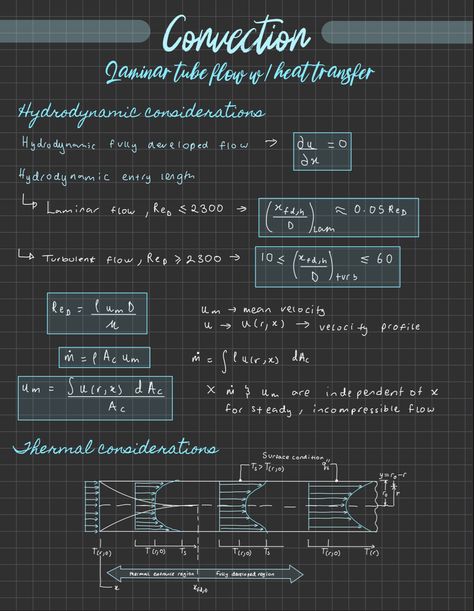 Convection
Laminar tube flow w/ heat transfer
Hydrodynamic considerations
Hydrodynamic fully developed flow → ∂u/∂x = 0
Hydrodynamic entry length
↳ Laminar flow, Re_D ≤ 2300 → (x_fd,h / D)_Lam ≈ 0.05 Re_D
↳ Turbulent flow, Re_D ≥ 2300 → 10 ≤ (x_fd,h / D)_turb ≤ 60
Re_D = ρ u_m D / μ
u_m → mean velocity
u → u(r,x) → velocity profile
ṁ = ρ A_c u_m
ṁ = ∫ ρ u(r,x) dA_c
u_m = ∫ u(r,x) dA_c / A_c
× ṁ & u_m are independent of x
for steady, incompressible flow
Thermal considerations
Surface condition
T_s > T(r,0)
q_s''
y = r_o - r
r_o
r
T(r,0) T(r,0) T_s T(r,0) T_s T(r,0) T(r)
thermal entrance region Fully developed region
x
x_fd,t